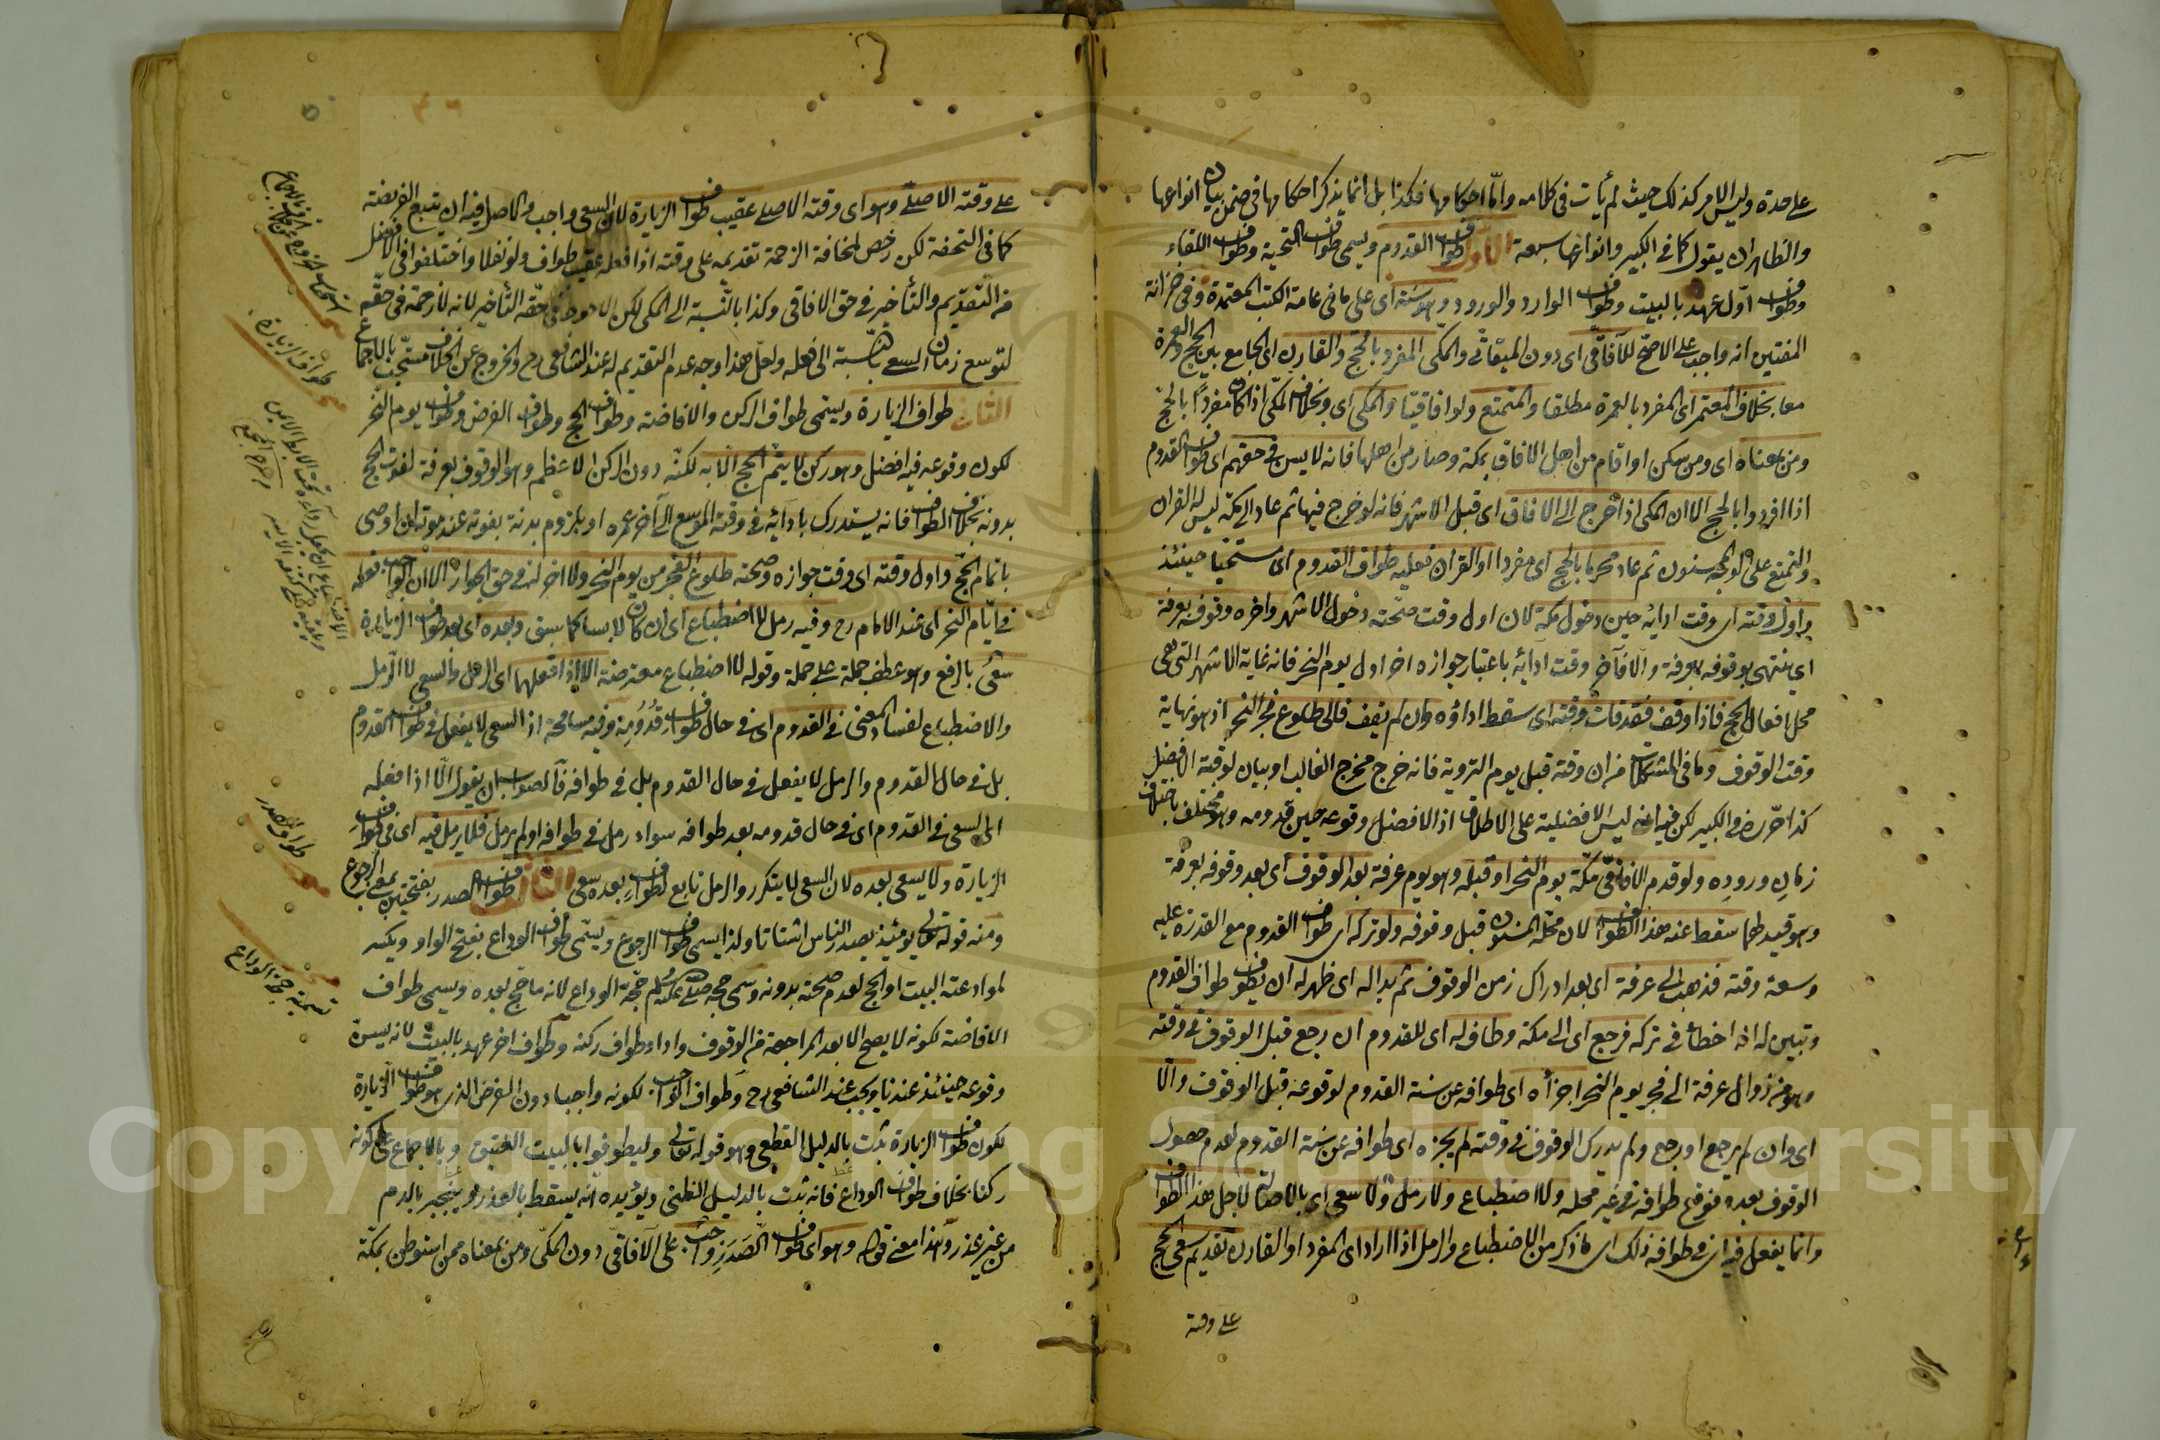 على حدة وليس الامر كذلك حيث لم يأت في كلامه واما احكامها فكذا بل انما يذكر احكامها في ضمن بيان انواعها
والظاهر ان يقول كما في الكبير وانواعها سبعة الاول طواف القدوم ويسمى طواف التحية وطواف اللقاء
وطواف اول عهد بالبيت وطواف الوارد والورود وهو سنة اى على ما في عامة الكتب المعتمدة وفي خزانة
المفتين انه واجب على الاصح للآفاقي اى دون الميقاتي والمكي المفرد بالحج والقارن اى الجامع بين الحج والعمرة
معا بخلاف المعتمر اى المفرد بالعمرة مطلقا والمتمتع ولو افاقيا والمكي اى وبخلاف المكي اذا كان مفردا بالحج
ومن بمعناه اى ومن سكن او اقام من اهل الافاق بمكة وصار من اهلها فانه لا يسن في حقهم اى طواف القدوم
اذا افردوا بالحج الا ان المكي اذا خرج الى الافاق اى قبل الاشهر فانه لو خرج فيها ثم عاد الى مكة ليس له القران
والتمتع على الوجه المسنون ثم عاد محرما بالحج اى مفردا او القران فعليه طواف القدوم اى مستحبا حينئذ
واول وقته اى وقت ادائه حين دخول مكة لان اول وقت صحته دخول الاشهر واخره وقوفه بعرفة
اى ينتهى بوقوفه بعرفة والا فآخر وقت ادائه باعتبار جوازه اخر اول يوم النحر فانه غاية الاشهر التي هي
محل افعال الحج فاذا وقف فقد فات وقته اى سقط اداؤه وان لم يقف فالى طلوع فجر النحر اذ هو نهاية
وقت الوقوف وما في المشكلات من ان وقته قبل يوم التروية فانه خرج مخرج الغالب او بيان لوقته الافضل
كذا حرره في الكبير لكن فيه انه ليس الافضلية على الاطلاق اذ الافضل وقوعه حين قدومه وهو مختلف باختلاف
زمان وروده ولو قدم الافاقي مكة يوم النحر او قبله وهو يوم عرفة بعد الوقوف اى بعد وقوفه بعرفة
وهو قيد لهما سقط عنه هذا الطواف لان محله المسنون قبل وقوفه ولو تركه اى طواف القدوم مع القدرة عليه
وسعة وقته فذهب الى عرفة اى بعد ادراك زمن الوقوف ثم بدا له اى ظهر له ان يطوف طواف القدوم
وتبين له انه اخطأ في تركه فرجع اى الى مكة وطاف له اى للقدوم ان رجع قبل الوقوف في وقته
وهو من زوال عرفة الى فجر يوم النحر اجزأه اى طوافه عن سنة القدوم لوقوعه قبل الوقوف والا
اى وان لم يرجع او رجع ولم يدرك الوقوف في وقته لم يجزه اى طوافه عن سنة القدوم لعدم حصول
الوقوف بعده فوقع طوافه في غير محله ولا اضطباع ولا رمل ولا سعى اى بالاصالة لاجل هذا الطواف
وانما يفعل فيه اى في طوافه ذلك اى ما ذكر من الاضطباع والرمل اذا اراد اى المفرد او القارن تقديم سعى الحج
على وقته
على وقته الاصلي وهو اى وقته الاصلي عقيب طواف الزيارة لان السعى واجب والاصل فيه ان يتبع الفريضة
كما في التحفة لكن رخص لمخافة الزحمة تقديمه على وقته اذا فعله عقيب طواف ولو نفلا واختلفوا في الافضل
من التقديم والتأخير في حق الافاقي وكذا بالنسبة الى المكي لكن الاحوط في حقه التأخير لانه لا زحمة في حقه
لتوسع زمان السعى بالنسبة الى فعله ولعل هذا وجه عدم التقديم له عند الشافعي رح والخروج عن الخلاف مستحب بالاجماع
الثاني طواف الزيارة ويسمى طواف الركن والافاضة وطواف الحج وطواف الفرض وطواف يوم النحر
لكون وقوعه فيه افضل وهو ركن لا يتم الحج الا به لكنه دون الركن الاعظم وهو الوقوف بعرفة لفوت الحج
بدونه بخلاف الطواف فانه يستدرك بادائه في وقته الموسع الى آخر عمره او بلزوم بدنة بفوته عند موته ان اوصى
باتمام الحج واول وقته اى وقت جوازه وصحته طلوع الفجر من يوم النحر ولا اخر له في حق الجواز الا ان الواجب فعله
في ايام النحر اى عند الامام رح وفيه رمل لا اضطباع اى ان كان لابسا كما سبق وبعده اى بعد طواف الزيارة
سعى بالرفع وهو عطف جملة على جملة وقوله لا اضطباع معترضة الا اذا فعلهما اى الرمل والسعى لا الرمل
والاضطباع لفساد المعنى في القدوم اى في حال طواف قدومه وفيه مسامحة اذ السعى لا يفعل في طواف القدوم
بل في حال القدوم والرمل لا يفعل في حال القدوم بل في طوافه فالصواب ان يقول الا اذا فعله
اى السعى في القدوم اى في حال قدومه بعد طوافه سواء رمل في طوافه او لم يرمل فلا يرمل فيه اى في طواف
الزيارة ولا يسعى بعده لان السعى لا يتكرر والرمل تابع لطواف بعده سعى الثالث طواف الصدر بفتحتين بمعنى الرجوع
ومنه قوله تعالى يومئذ يصدر الناس اشتاتا ولذا يسمى طواف الرجوع ويسمى طواف الوداع بفتح الواو ويكسر
لموادعته البيت او الحج لعدم صحته بدونه وسمى حجه صلى الله عليه وسلم حجة الوداع لانه ما حج بعده ويسمى طواف
الافاضة لكونه لا يصح الا بعد المراجعة من الوقوف واداء طواف ركنه وطواف اخر عهد بالبيت لانه يسن
وقوعه حينئذ عندنا ويجب عند الشافعي رح وطواف الواجب لكونه واجبا دون الفرض الذى هو طواف الزيارة
لكون طواف الزيارة يثبت بالدليل القطعي وهو قوله تعالى وليطوفوا بالبيت العتيق وبالاجماع على كونه
ركنا بخلاف طواف الوداع فانه ثبت بالدليل الظني ويؤيده انه يسقط بالعذر وينجبر بالدم
من غير عذر وهذا معنى قوله وهو اى طواف الصدر واجب على الآفاقي دون المكي ومن بمعناه ممن استوطن بمكة
طواف الزيارة
طواف الصدر
تسمية حجة الوداع